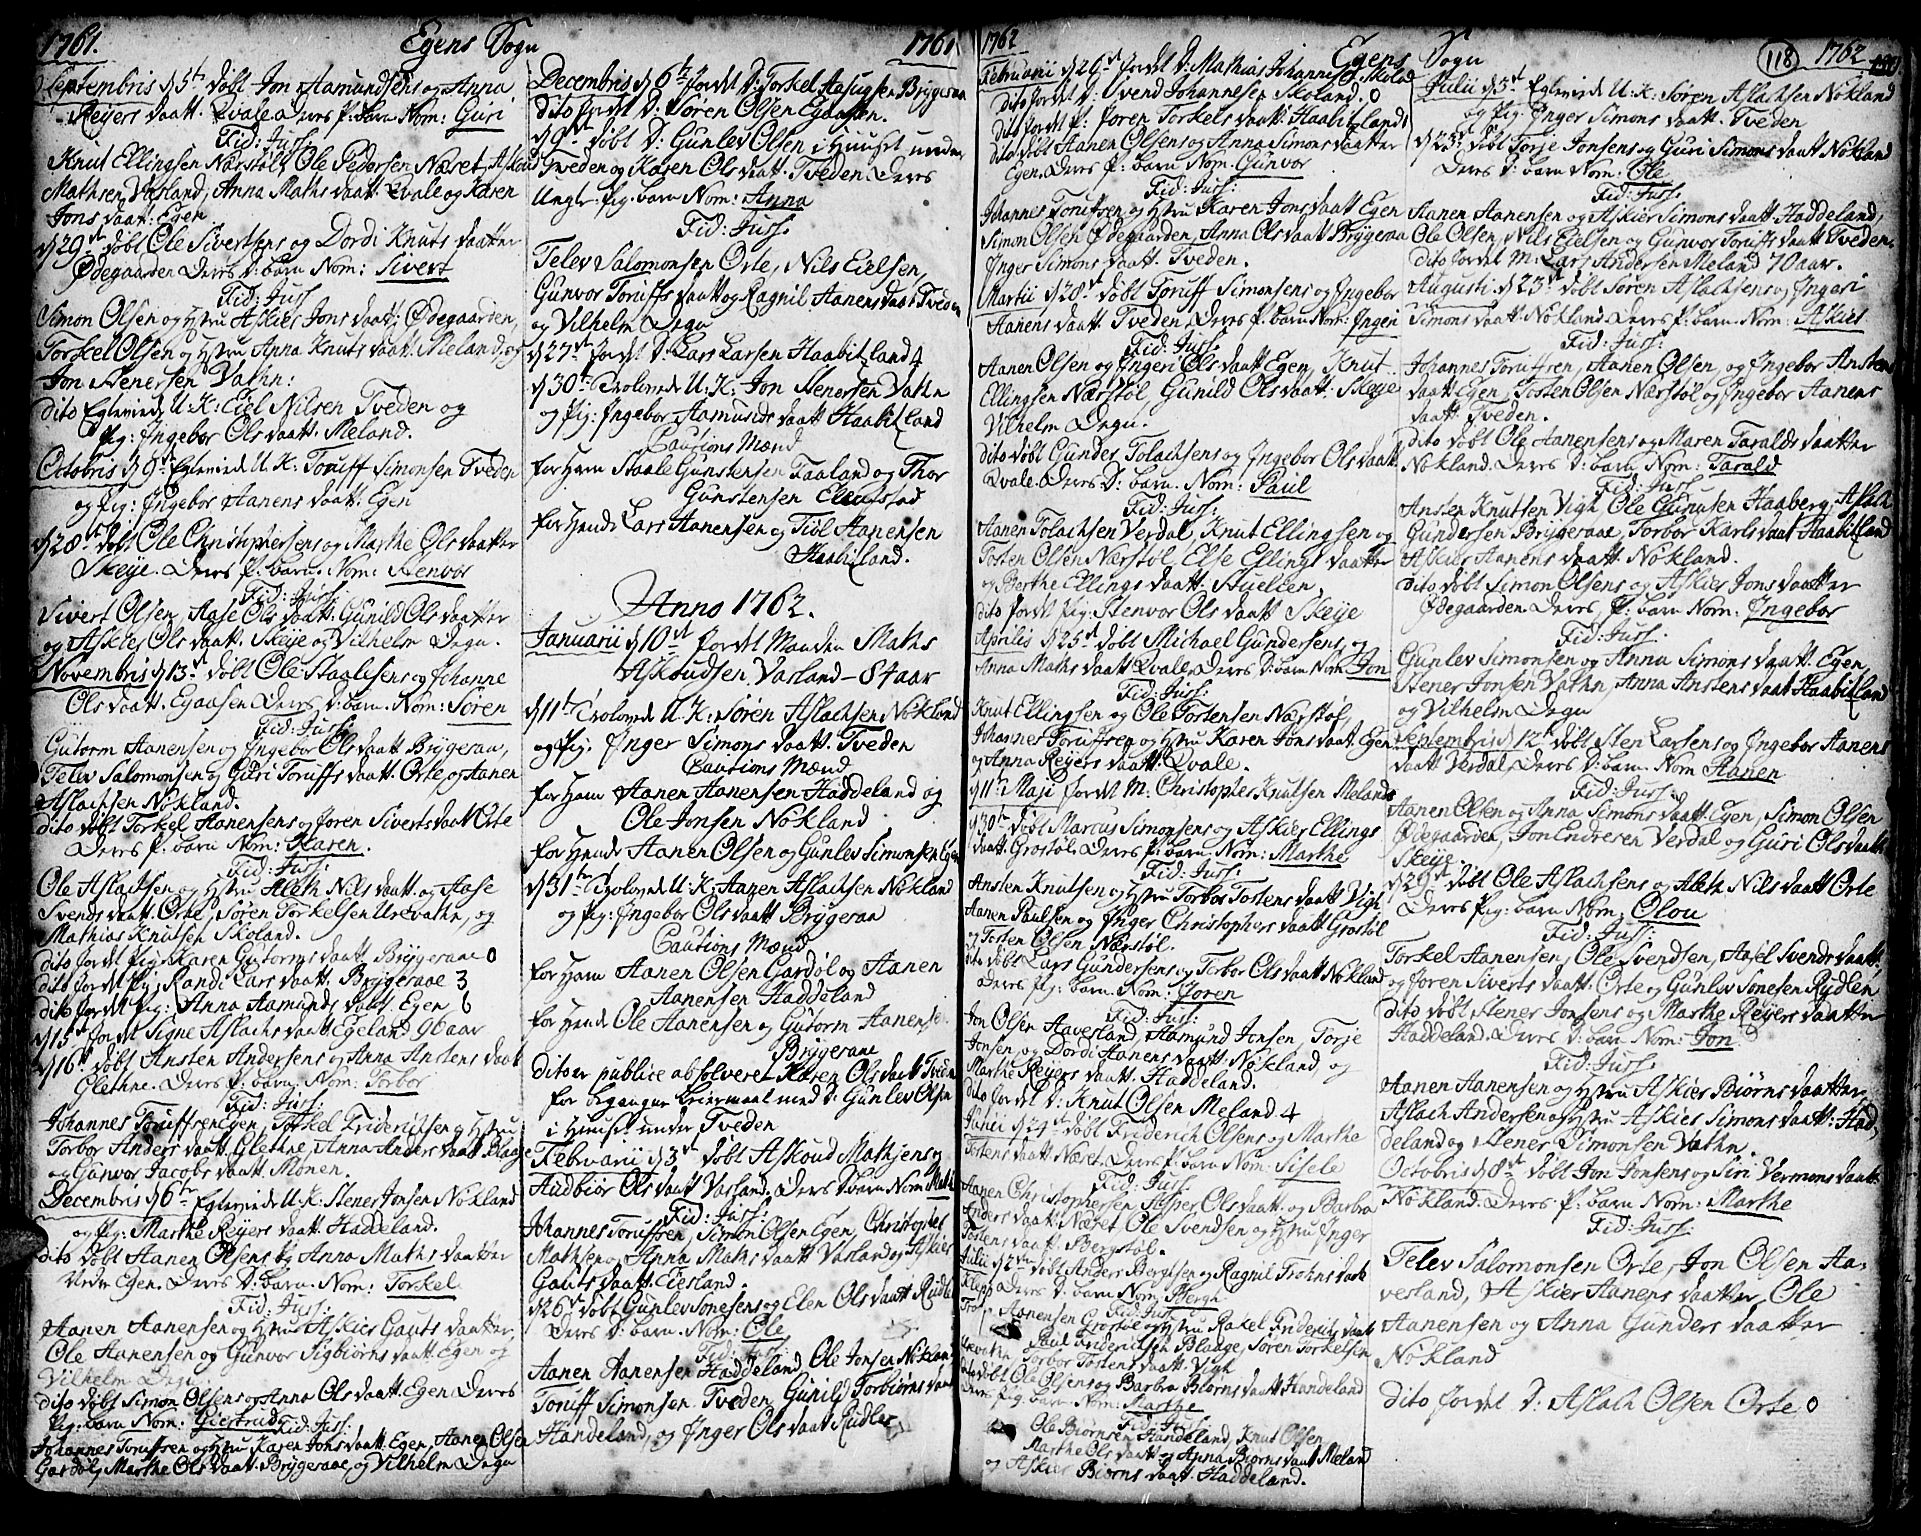 1761. Egens Sogn 1761
Septembris d 5t døbt Jon Aamundsens og Anna
Reyers daatt. Qvale. Deres P: barn Nom: Guri
Fid: Juss:
Knut Ellingsen Nærstøl, Ole Pedersen Næset, Askoud
Mathsen Vasland, Anna Maths daatt. Qvale og Karen
Jons daatt: Egen
d 29de døbt Ole Sivertsens og Dordi Knuts daatter
Ødegaarden Deres D: barn Nom: Sivert
Fid: Juss
Simon Olsen og Hstru Askier Jons daatt; Ødegaarden,
Torkel Olsen og Hstru Anna Knuts daatt. Meland, og
Jon Stenersen Vathn:
dito Egtevied U: K: Eiel Nilsen Tveden og
Pig: Ingebor Ols daatt. Meland.
Octobris d 9de Egtevied U: K: Toruff Simonsen Tveden
og Pig: Ingebor Aanens daatt. Egen
d 28de døbt Ole Christophersens og Marthe Ols daatter
Skeye. Deres P: barn. Nom: Stenvor
Fid: Juss:
Sivert Olsen, Aase Ols daatt. Gunild Ols daatter
og Askier Ols daatt. Skeye og Vilhelm Degn.
Novembris d 13de døbt Ole Staalesens og Johanne
Ols daatt. Egaasen Deres D: barn. Nom: Søren
Fid: Juss:
Gutorm Aanensen og Ingebor Ols daatt. Brygeraae,
Telev Salomonsen og Guri Toruffs daatt. Orte og Aanen
Aslachsen Nøkland.
dito døbt Torkel Aanensens og Joren Siverts daatt Orte
Deres P: barn Nom: Karen.
Fid: Juss:
Ole Aslachsen og Hstru Aleth Nils daatt. og Aase
Svends daatt. Orte, Søren Torkelsen Urevathn, og
Mathias Knutsen Skoland.
dito Jordet Pig: Karen Gutorms daatt. Brygeraae 0
dito Jordet Pig: Rand: Lars daatt. Brygeraae 3
dito Jordet Pig: Anna Aamunds daatt. Egen 6
d 15de Jordet Signe Aslachs daatt. Egeland 96 aar
d 16de døbt Ansten Andersens og Anna Anstens daatt
Glethne. Deres P: barn. Nom: Torbor
Fid: Juss:
Johannes Toruffsen Egen, Torkel Friderichsen og Hstru
Torbor Anders daatt. Glethne, Anna Anders daatt. Blaage
og Gunvor Jacobs daatt. Monen.
Decembris d 6te Egtevied U: K: Stener Jonsen Nøkland
og Pig: Marthe Reyers daatt. Haddeland.
dito døbt Aanen Olsens og Anna Maths daatter
Nedre Egen. Deres D: barn: Nom: Torkel
Fid: Juss:
Aanen Aanensen og Hstru Askier Gauts daatter,
Ole Aanensen og Gunvor Sigbiørns daatt. Egen og
Vilhelm Degn
dito døbt Simon Olsens og Anna Ols daatt. Egen Deres
Pig. barn Nom: Giertrud Fid: Juss:
Johannes Toruffsen og Hstru Karen Jons daatt. Egen, Aanen Olsen
Gardøl, Marthe Ols daatt. Brygeraae, og Vilhelm Degn
Decembris d 6te Jordet D: Torkel Aasulfsen Brygeraae
dito Jordet D: Søren Olsen Egaasen.
d 9de døbt D: Gunlev Olsen i Huuset under
Tveden og Karen Ols daatt. Tveden. Deres
Uegte. Pig. barn Nom: Anna
Fid: Juss.
Telev Salomonsen Orte, Nils Eielsen,
Gunvor Toruffs daatt og Ragnil Aanens daatt Tveden
og Vilhelm Degn
d 27de Jordet D: Lars Larsen Haabitzland 4
d 30te Trolovede U: K: Jon Stenersen Vathn
og Pig: Ingebor Aamunds daatt Haabitzland
Cautions Mænd
for Ham Staale Gunstensen Faaland og Thor
Gunstensen Ellingstad
for Hende Lars Aanensen og Tiøl Aanensen
Haabitzland.
Anno 1762.
Januarii d 10de Jordet Manden Maths
Askoudsen Vasland - 84 aar
d 11te Trolovede U: K: Søren Aslachsen Nøkland
og Pig. Inger Simons daatt. Tveden
Cautions Mænd
for Ham Aanen Aanensen Haddeland og
Ole Jonsen Nøkland
for Hende Aanen Olsen og Gunlev Simonsen Egen
d 31te Trolovede U: K: Aanen Aslachsen Nøkland
og Pig: Ingebor Ols daatt Brygeraae
Cautions Mænd
for Ham Aanen Olsen Gardøl og Aanen
Aanensen Haddeland
for Hende Ole Aanensen og Gutorm Aanensen
Brygeraae
dito er publice absolveret Karen Ols daatt Tveden
for begangne Leiermaal med D: Gunlev Olsen
i Huuset under Tveden
Februarii d 3de døbt Askoud Mathsens og
Hudbior Ols daatt Vasland. Deres D: barn Nom: Maths
Fid: Juss:
Johannes Toruffsen, Simon Olsen Egen, Christopher
Mathsen og Anna Maths daatt Vasland og Askier
Gauts daatt. Eiesland.
d 26de døbt Gunlev Sonesens og Elen Ols daatt Rudlen
Deres D: barn. Nom: Ole
Fid: Juss:
Aanen Aanensen Haddeland, Ole Jonsen Nøkland
Toruff Simonsen Tveden, Gunild Torbiørns daatt
Handeland, og Inger Ols daatt Rudlen
1762 Egens Sogn 118 1762
Februarii d 26de Jordet D: Mathias Johannesen Skoland
dito Jordet D: Svend Johannesen Skoland. 0
dito Jordet P: Joren Torkels daatt: Haabitzland
dito døbt Aanen Olsens og Anna Simons daatter
Egen. Deres P: barn Nom: Gunvor
Fid: Juss:
Johannes Toruffsen og Hstru Karen Jons daatt Egen
Simon Olsen Ødegaarden, Anna Ols daatt Brygeraae
Inger Simons daatt. Tveden.
Martii d 28de døbt Toruff Simonsens og Ingebor
Aanens daatt. Tveden. Deres P: barn Nom: Ingeri
Fid: Juss:
Aanen Olsen og Ingeri Ols daatt Egen, Knut
Ellingsen Nærstøl, Gunild Ols daatt: Skeye
Vilhelm Degn.
dito døbt Gunder Tolachsens og Ingebor Ols daatt
Qvale. Deres D: barn. Nom: Paul
Fid: Juss:
Aanen Tolachsen Verdal, Knut Ellingsen og
Tosten Olsen Nærstøl, Else Ellings daatter
og Berthe Ellings daatt. Stuelien.
dito Jordet Pig: Stenvor Ols daatt Skeye
Aprilis d 25de døbt Michael Gundersens, og
Anna Maths daatt Qvale. Deres D: barn Nom: Jon
Fid: Juss:
Knut Ellingsen og Ole Tostensen Nærstøl,
Johannes Toruffsen og Hstru Karen Jons daatt. Egen
og Anna Reyers daatt: Qvale.
d 11te Maji Jordet M. Christopher Knutsen Meland
d 20de døbt Marcus Simonsens og Askier Ellings
daatt. Grostøl. Deres P: barn Nom: Marthe
Fid: Juss:
Ansten Knutsen og Hstru Torbor Tostens daatt Vigh
Aanen Paulsen og Inger Christophers daatt Grostøl
og Tosten Olsen Nærstøl.
dito døbt Lars Gundersens og Torbor Ols daatt Nøkland
Deres Pig: barn Nom: Joren
Fid: Juss:
Jon Olsen Aavesland, Aamund Jonsen, Torje
Jonsen, og Dordi Aanens daatt. Nøkland, og
Marthe Reyers daatt. Haddeland.
dito Jordet D: Knut Olsen Meland 4
Junii d 24de døbt Friderich Olsens og Martha
Tostens daatt Næset. Deres P: barn Nom: Sisele
Fid: Juss:
Aanen Christophersen, Asper Ols daatt. og Barbra
Anders daatt. Næset Ole Svendsen og Hstru Inger
Tostens daatt. Bergstøl.
Julii d 2den døbt Anders Bergtsens og Ragnil Trohns daatt
Klepp Deres D: barn Nom: Bergh
Fid: Juss:
Aanensen Grostøl og Hstru Rakel Friderichs daatt
Paul Friderichsen Blaage, Søren Torkelsen
Urevathn Torbor Tostens daatt. Vigh
dito døbt Ole Olsens og Barbra Biørns daatt Handeland
Deres Pig. barn Nom: Marthe
Fid: Juss:
Ole Biørnsen Handeland, Knut Olsen
Marthe Ols daatt og Anna Biørns daatt Meland
og Askier Biørns daatt. Haddeland.
Julii d 5te Egtevied U: K: Søren Aslachsen Nøkland
og Pig: Inger Simons daatt. Tveden
d 25de døbt Torje Jonsens og Guri Simons daatt Nøkland
Deres D: barn Nom: Ole
Fid: Juss:
Aanen Aanensen og Askier Simons daatt: Haddeland,
Ole Olsen, Nils Eielsen og Gunvor Toruffs daatt Tveden
dito Jordet M: Lars Andersen Meland 70 aar.
Augusti d 23de døbt Søren Aslachsens og Ingeri
Simons daatt. Nøkland. Deres P: barn. Nom: Askier
Fid: Juss:
Johannes Toruffsen, Aanen Olsen, og Ingebor Anstens
daatt Egen, Tosten Olsen Nærstøl og Ingebor Aanens
daatt. Tveden.
dito døbt Ole Aanensens og Maren Taralds daatter
Nøkland. Deres D: barn. Nom: Tarald
Fid: Juss:
Ansten Knutsen Vigh Ole Haaberg, Aslach
Gundersen Brygeraae, Torbor Karls daatt Haabitzland
Askier Aanens daatt Nøkland.
dito døbt Simon Olsens og Askier Jons daatter
Ødegaarden Deres P: barn Nom: Ingebor
Fid: Juss:
Gunlev Simonsen og Anna Simons daatt. Egen,
Stener Jonsen Vathn, Anna Anstens daatt Haabitzland
og Vilhelm Degn
Septembris d 12te døbt Sten Larsens og Ingebor Aanens
daatt Verdal, Deres D: barn Nom Aanen
Fid: Juss:
Aanen Olsen og Anna Simons daatt: Egen, Simon Olsen
Ødegaarden, Jon Endresen Verdal og Guri Ols daatt.
Skeye.
d 29de døbt Ole Aslachsens og Aleth Nils daatt Orte
Deres Pig: barn Nom: Olou
Fid: Juss:
Torkel Aanensen, Ole Svendsen, Aasel Svends daatt.
og Joren Siverts daatt. Orte og Gunlev Sonesen Rudlen
dito døbt Stener Jonsens og Marthe Reyers daatter
Haddeland. Deres D: barn Nom: Jon
Fid: Juss:
Aanen Aanensen og Hstru Askier Biørns daatter
Aslach Andersen og Hstru Askier Simons daatt: Had-
deland og Stener Simonsen Vathn.
Octobris d 8de døbt Jon Jonsens og Siri Vermons daatt.
Nøkland. Deres P: barn Nom: Marthe
Fid: Juss:
Telev Salomonsen Orte, Jon Olsen Aa-
vesland, Askier Aanens daatter, Ole
Aanensen og Anna Gunders daatter
Nøkland
dito Jordet D: Aslach Olsen Orte 0